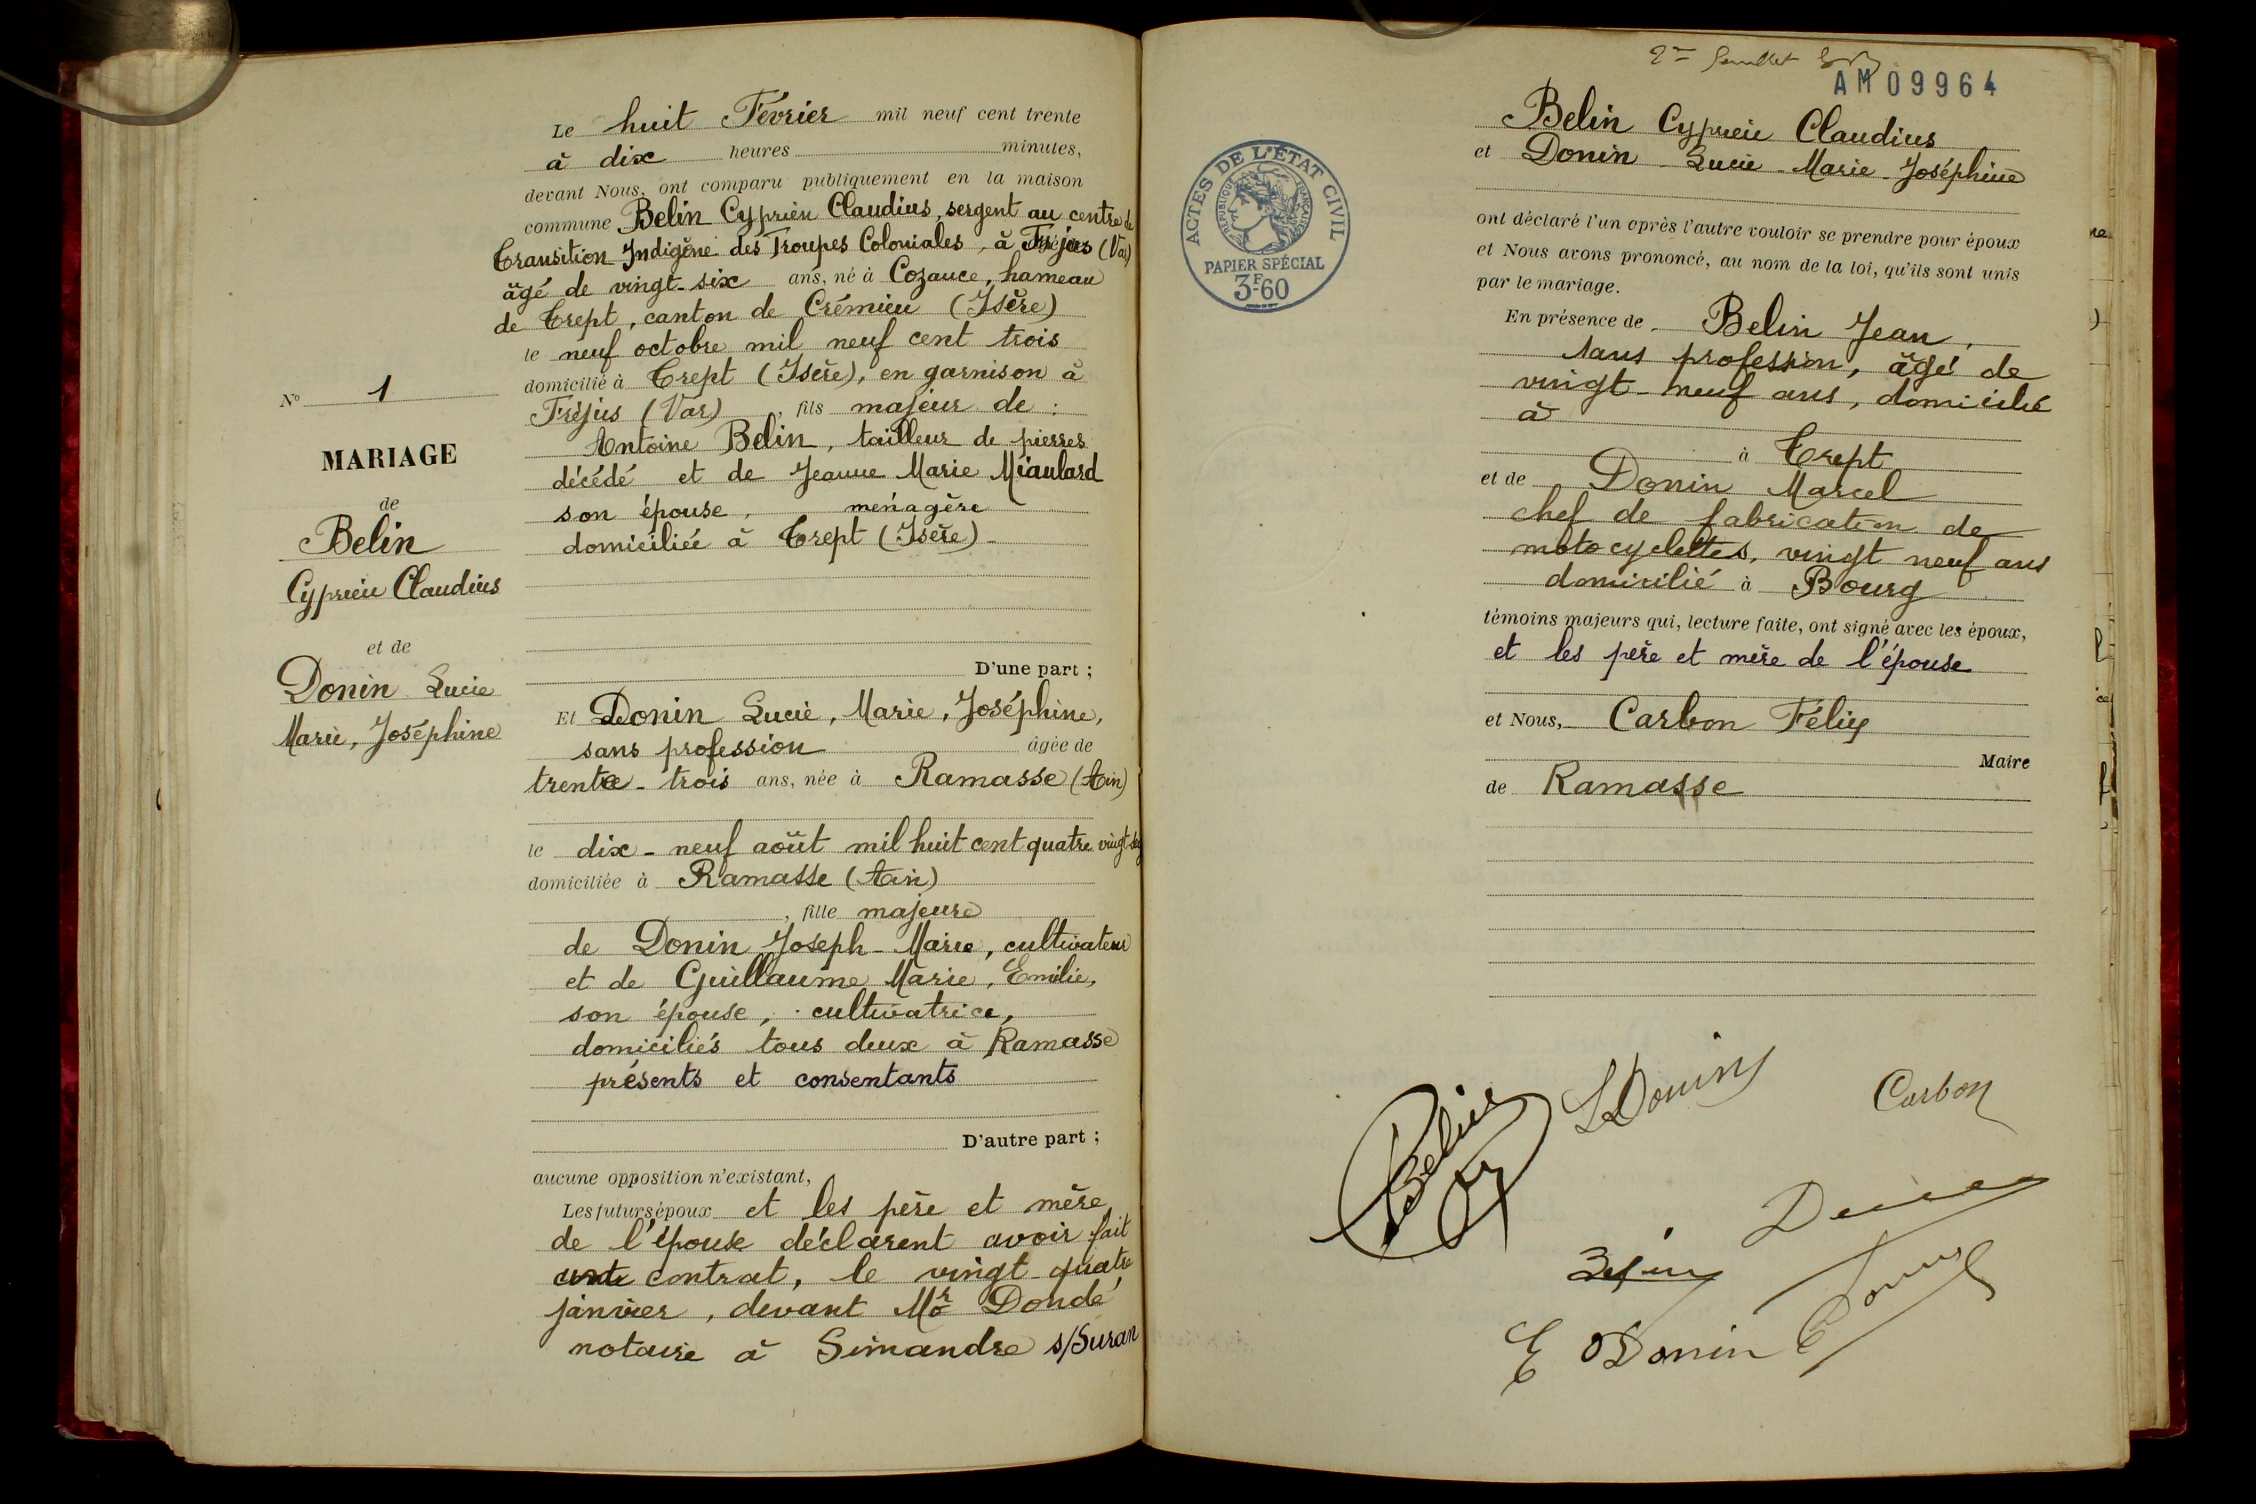 Le huit Février mil neuf cent trente
à dix heures minutes,
devant Nous, ont comparu publiquement en la maison
commune Belin Cyprien Claudius, sergent au centre de
Transition Indigène des Troupes Coloniales, à Fréjus (Var)
âgé de vingt-six ans, né à Cozance, hameau
de Trept, canton de Crémieu (Isère)
le neuf octobre mil neuf cent trois
domicilié à Trept (Isère), en garnison à
Fréjus (Var), fils majeur de :
Antoine Belin, tailleur de pierres
décédé et de Jeanne Marie Miaulard
son épouse, ménagère
domiciliée à Trept (Isère)
D'une part ;
Et Donin Lucie, Marie, Joséphine,
sans profession âgée de
trente-trois ans, née à Ramasse (Ain)
le dix-neuf août mil huit cent quatre vingt
domiciliée à Ramasse (Ain)
, fille majeure
de Donin Joseph-Marie, cultivateur
et de Guillaume Marie, Emilie,
son épouse, cultivatrice,
domiciliés tous deux à Ramasse
présents et consentants
D'autre part ;
aucune opposition n'existant,
Les futurs époux et les père et mère
de l'épouse déclarent avoir fait
contrat, le vingt-quatre
janvier, devant Mr Dondé
notaire à Simandre s/Suran
No 1
MARIAGE
de
Belin
Cyprien Claudius
et de
Donin Lucie
Marie, Joséphine
2me feuillet
AM09964
ACTES DE L'ÉTAT CIVIL
RÉPUBLIQUE FRANÇAISE
PAPIER SPÉCIAL
3F-60
Belin Cyprien Claudius
et Donin Lucie-Marie-Joséphine
ont déclaré l'un après l'autre vouloir se prendre pour époux
et Nous avons prononcé, au nom de la loi, qu'ils sont unis
par le mariage.
En présence de Belin Jean,
sans profession, âgé de
vingt-neuf ans, domicilié
à
à Trept
et de Donin Marcel
chef de fabrication de
motocyclettes, vingt neuf ans
domicilié à Bourg
témoins majeurs qui, lecture faite, ont signé avec les époux,
et les père et mère de l'épouse
et Nous, Carbon Félix
Maire
de Ramasse
Belin
L Donin
Carbon
E Donin